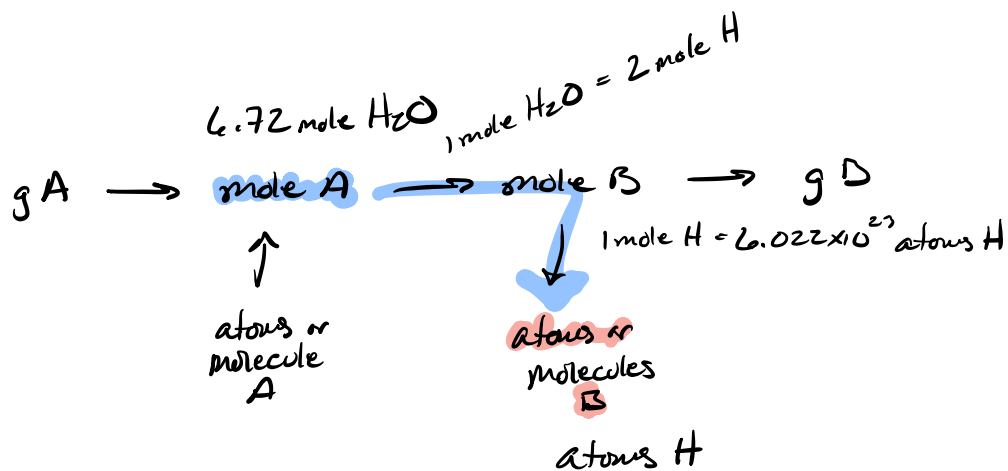 6.72 mole H₂O
1 mole H₂O = 2 mole H
g A → mole A → mole B → g B
1 mole H = 6.022x10²³ atoms H
atoms or
molecule
A
atoms or
molecules
B
atoms H